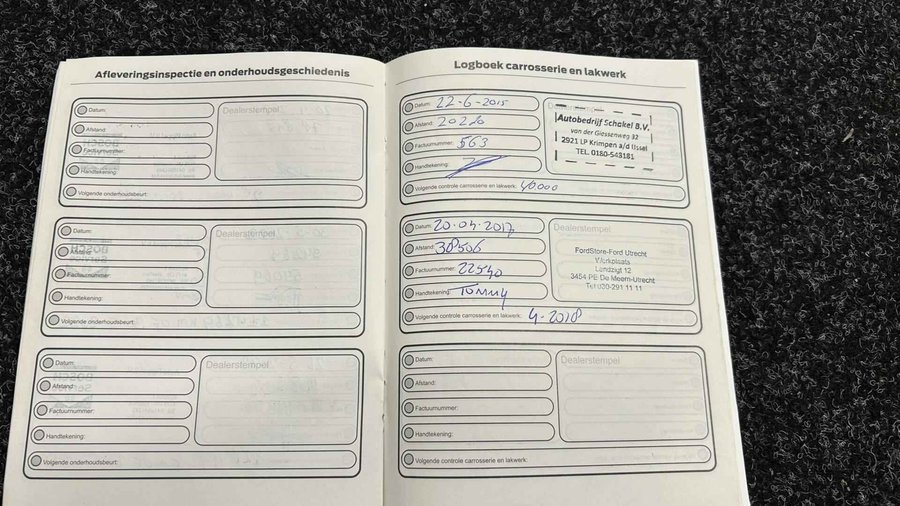 Afleveringsinspectie en onderhoudsgeschiedenis
Datum:
Afstand:
Factuurnummer:
Handtekening:
Volgende onderhoudsbeurt:
Dealerstempel
Datum:
Afstand:
Factuurnummer:
Handtekening:
Volgende onderhoudsbeurt:
Dealerstempel
Datum:
Afstand:
Factuurnummer:
Handtekening:
Volgende onderhoudsbeurt:
Dealerstempel
Logboek carrosserie en lakwerk
Datum: 22-6-2015
Afstand: 20220
Factuurnummer: 563
Handtekening:
Volgende controle carrosserie en lakwerk: 40.000
Dealerstempel
Autobedrijf Schakel B.V.
van der Giessenweg 32
2921 LP Krimpen a/d IJssel
TEL. 0180-543181
Datum: 20-04-2017
Afstand: 38506
Factuurnummer: 22540
Handtekening: Tommy
Volgende controle carrosserie en lakwerk: 4-2018
Dealerstempel
FordStore-Ford Utrecht
Werkplaats
Landzigt 12
3454 PE De Meern-Utrecht
Tel 030-291 11 11
Datum:
Afstand:
Factuurnummer:
Handtekening:
Volgende controle carrosserie en lakwerk:
Dealerstempel